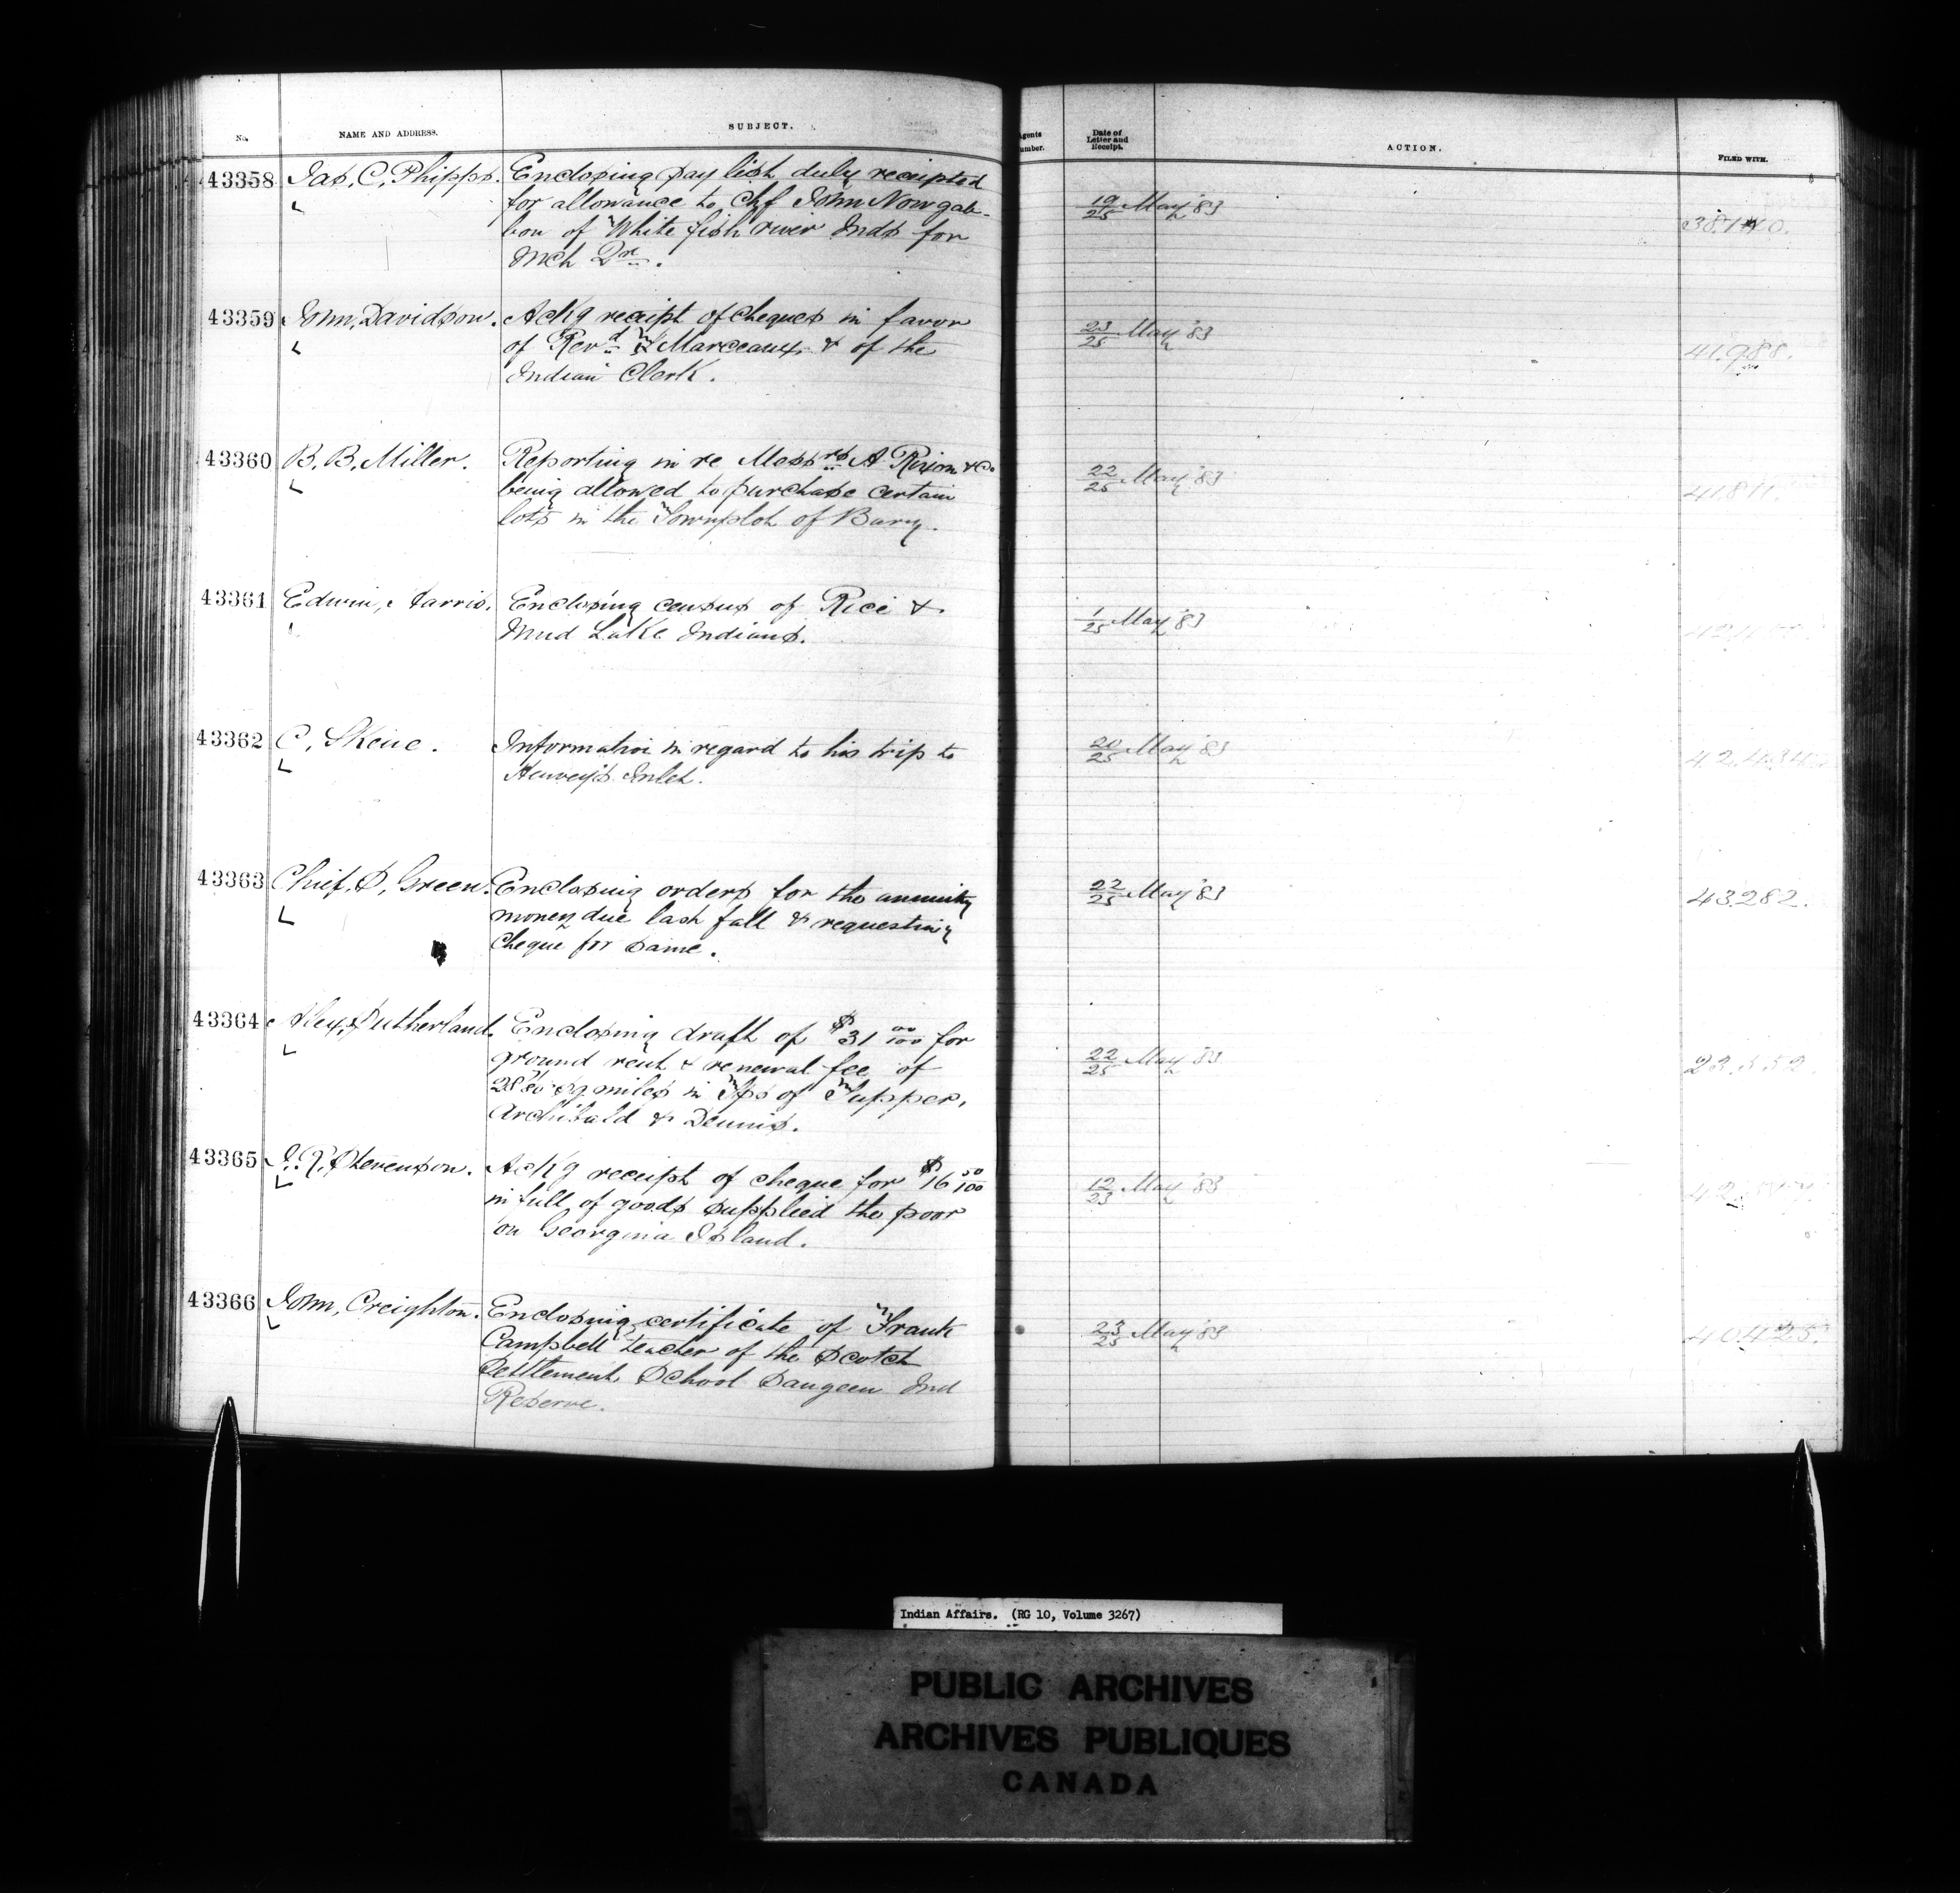 No. NAME AND ADDRESS. SUBJECT. Agents Number. Date of Letter and Receipt. ACTION. FILED WITH.
43358 Jas. C. Phipps. Enclosing pay list duly receipted
for allowance to Chf John Nowgab-
bow of White fish river Inds for
Mch Qre. 19/25 May '83
43359 John, Davidson. Ackg receipt of cheques in favor
of Revd Marceaux & of the
Indian Clerk. 23/25 May '83 41.988.
43360 B. B. Miller. Reporting in re Messrs A. Rixon & Co
being allowed to purchase certain
lots in the Townplot of Bury. 22/25 May '83 41.811.
43361 Edwin, Harris. Enclosing census of Rice &
Mud Lake Indians. 1/25 May '83
43362 C. Skene. Information in regard to his trip to
Henvey's Inlet. 20/25 May '83
43363 Chief, S, Green. Enclosing orders for the annuity
money due last fall & requesting
cheque for same. 22/25 May '83 43.282.
43364 Alex, Sutherland. Enclosing draft of $31 00/100 for
ground rent & renewal fee of
sq. miles in Tps of Tupper,
Archibald & Dennis. 22/25 May '83
43365 J. R. Stevenson. Ackg receipt of cheque for $16 50/100
in full of goods supplied the poor
on Georgina Island. 12/23 May '83
43366 John, Creighton. Enclosing certificate of Frank
Campbell teacher of the Scotch
Settlement School Saugeen Ind
Reserve. 23/25 May '83 40.425.
Indian Affairs. (RG 10, Volume 3267)
PUBLIC ARCHIVES
ARCHIVES PUBLIQUES
CANADA